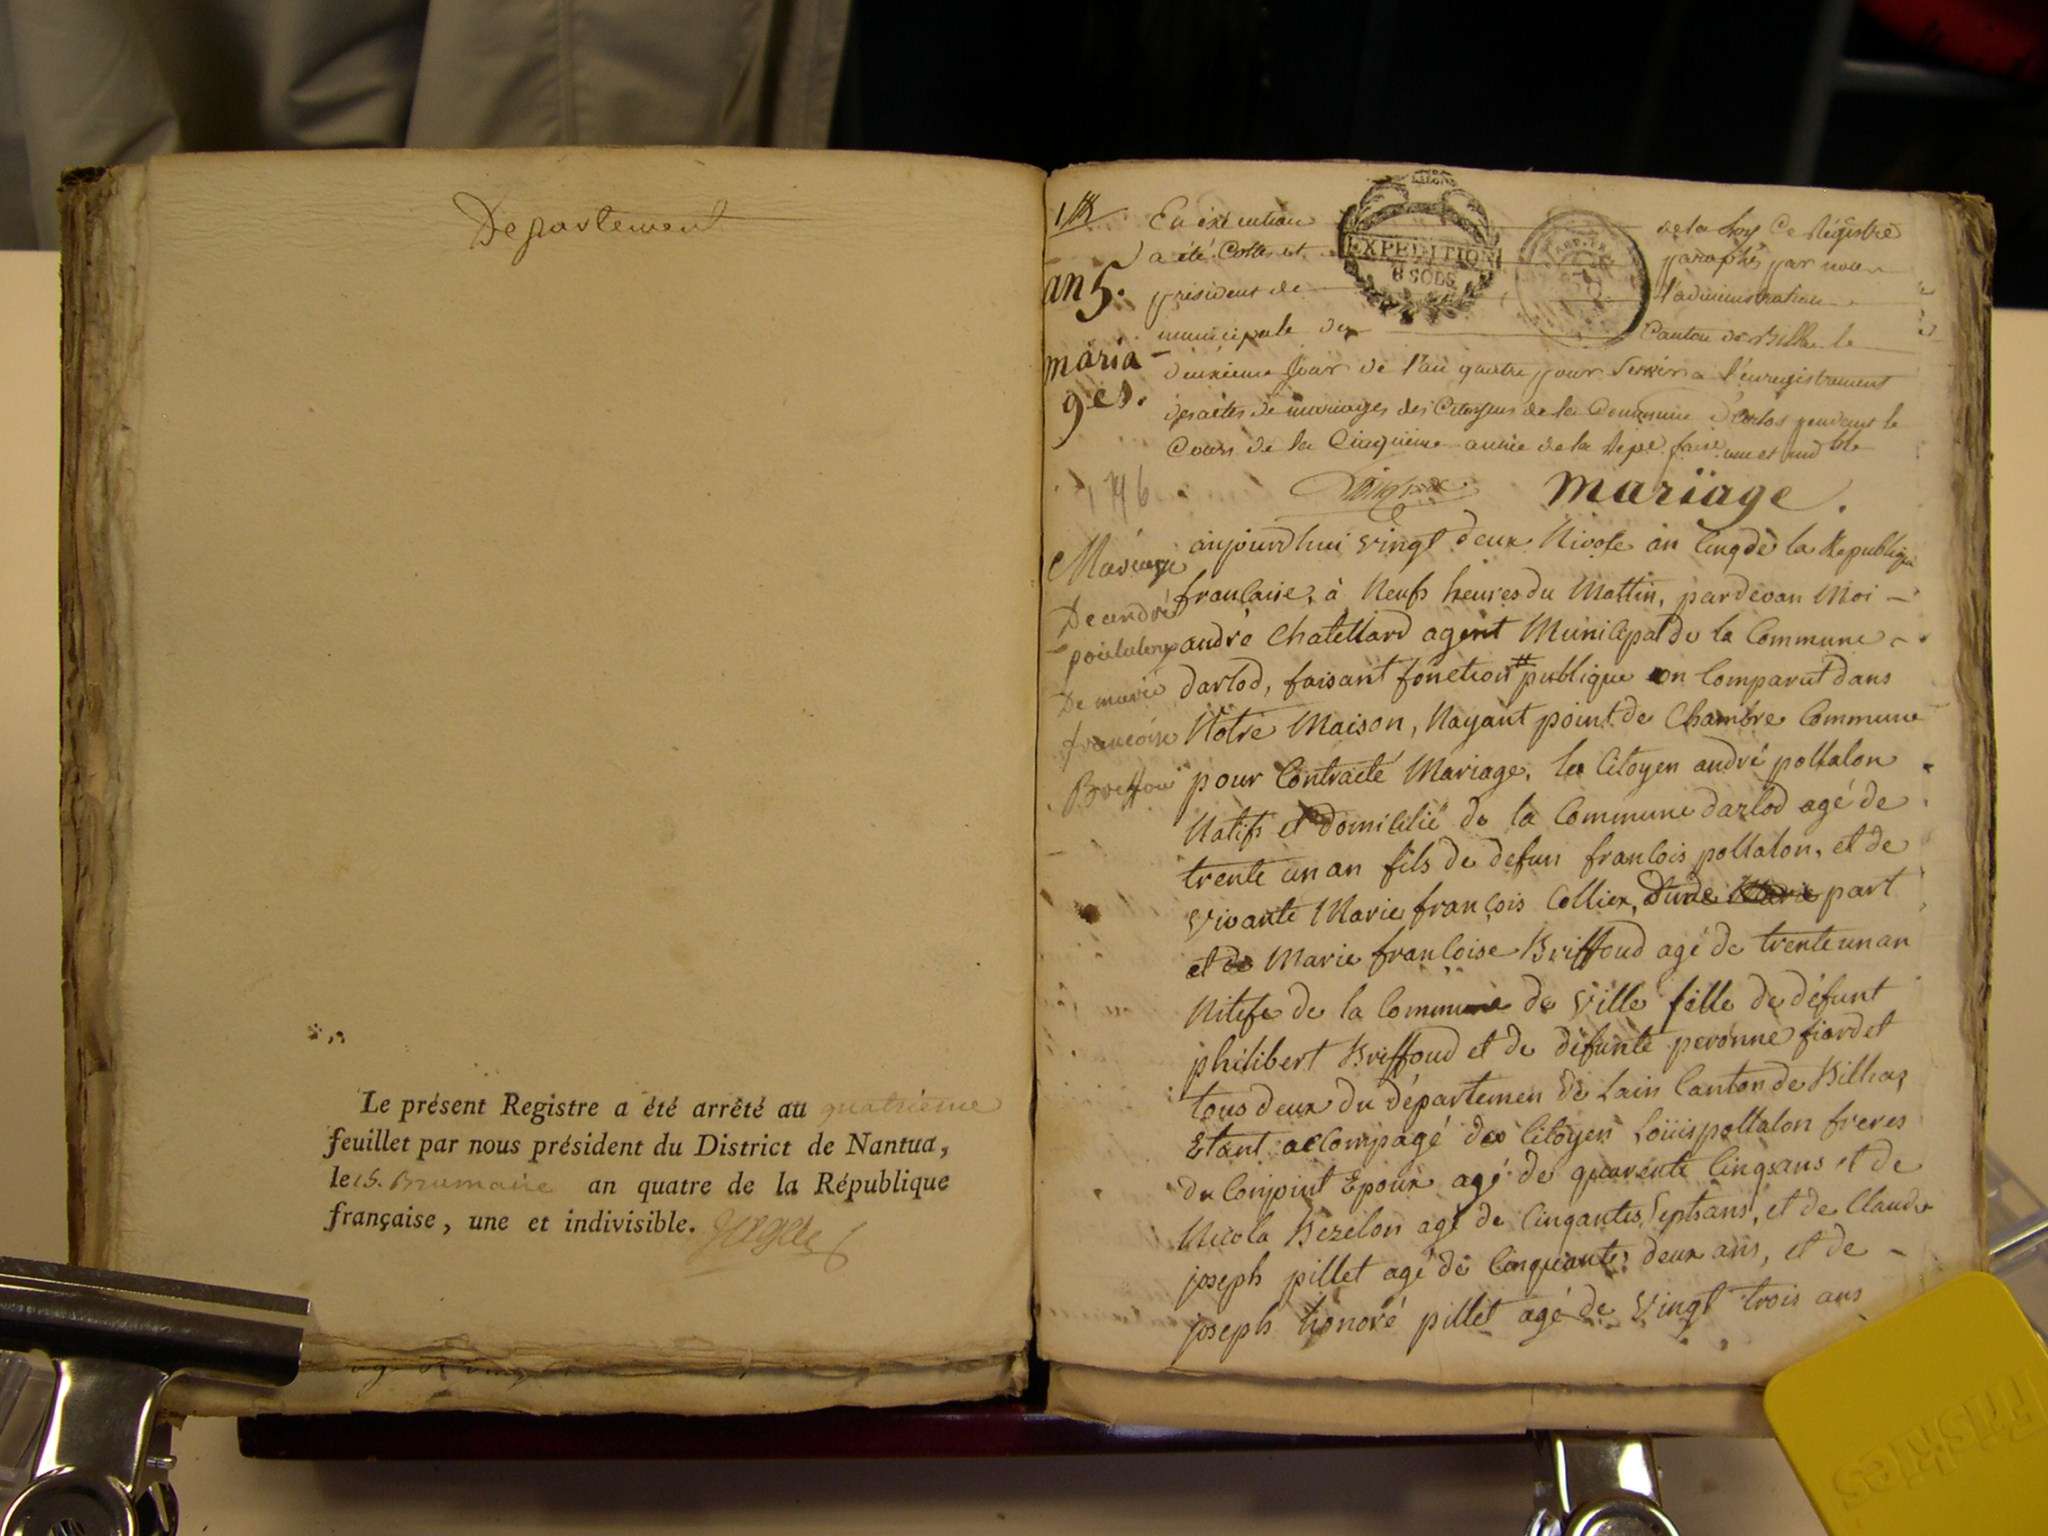 Departement
Le présent Registre a été arrêté au quatrieme
feuillet par nous président du District de Nantua,
le 15. Brumaire an quatre de la République
française, une et indivisible.
En execution de la Loy Ce Régistre
a été Cottes et paraphés par nous
président de l'administration
municipale du Canton de Billia le
deuxieme Jour de l'an quatre pour Servir a l'enregistrement
des actes de mariages des Citoyens de la Commune d'Arlos pendant le
Cours de la Cinquieme année de la Repe. fçaise une et indble
EXPEDITION
8 SOLS
an 5.
maria-
ges.
Mariage
De andré
De marie
francoise
Mariage.
aujourdhui vingt deux Nivose an Cinq de la Republique
francaise, à Neufs heures du Mattin, pardevan Moi
andré Chatellard agent Municipal de la Commune
darlod, faisant fonction # publique on Comparut dans
Notre Maison, Nayant point de Chambre Commune
pour Contracté Mariage, le Citoyen andré poltalon
Natifs et domicilié de la Commune darlod agé de
trente un an fils de defun francois poltalon, et de
vivante Marie françois Collier, d'une Marie part
et de Marie francoise Briffoud agé de trente un an
Nitife de la Commune de Ville fille de défunt
philibert Briffoud et de défunte peronne fiordet
tous deux du départemen de Lain Canton de Billiaz
Etant accompagé des Citoyen Loüis poltalon freres
du Conjoint Epoux agé de quarente Cinq ans et de
Nicola Bezelon agé de Cinqantes Septs ans, et de Claude
joseph pillet agé de Cinquante deux ans, et de
joseph honoré pillet agé de Vingt trois ans
Friskies